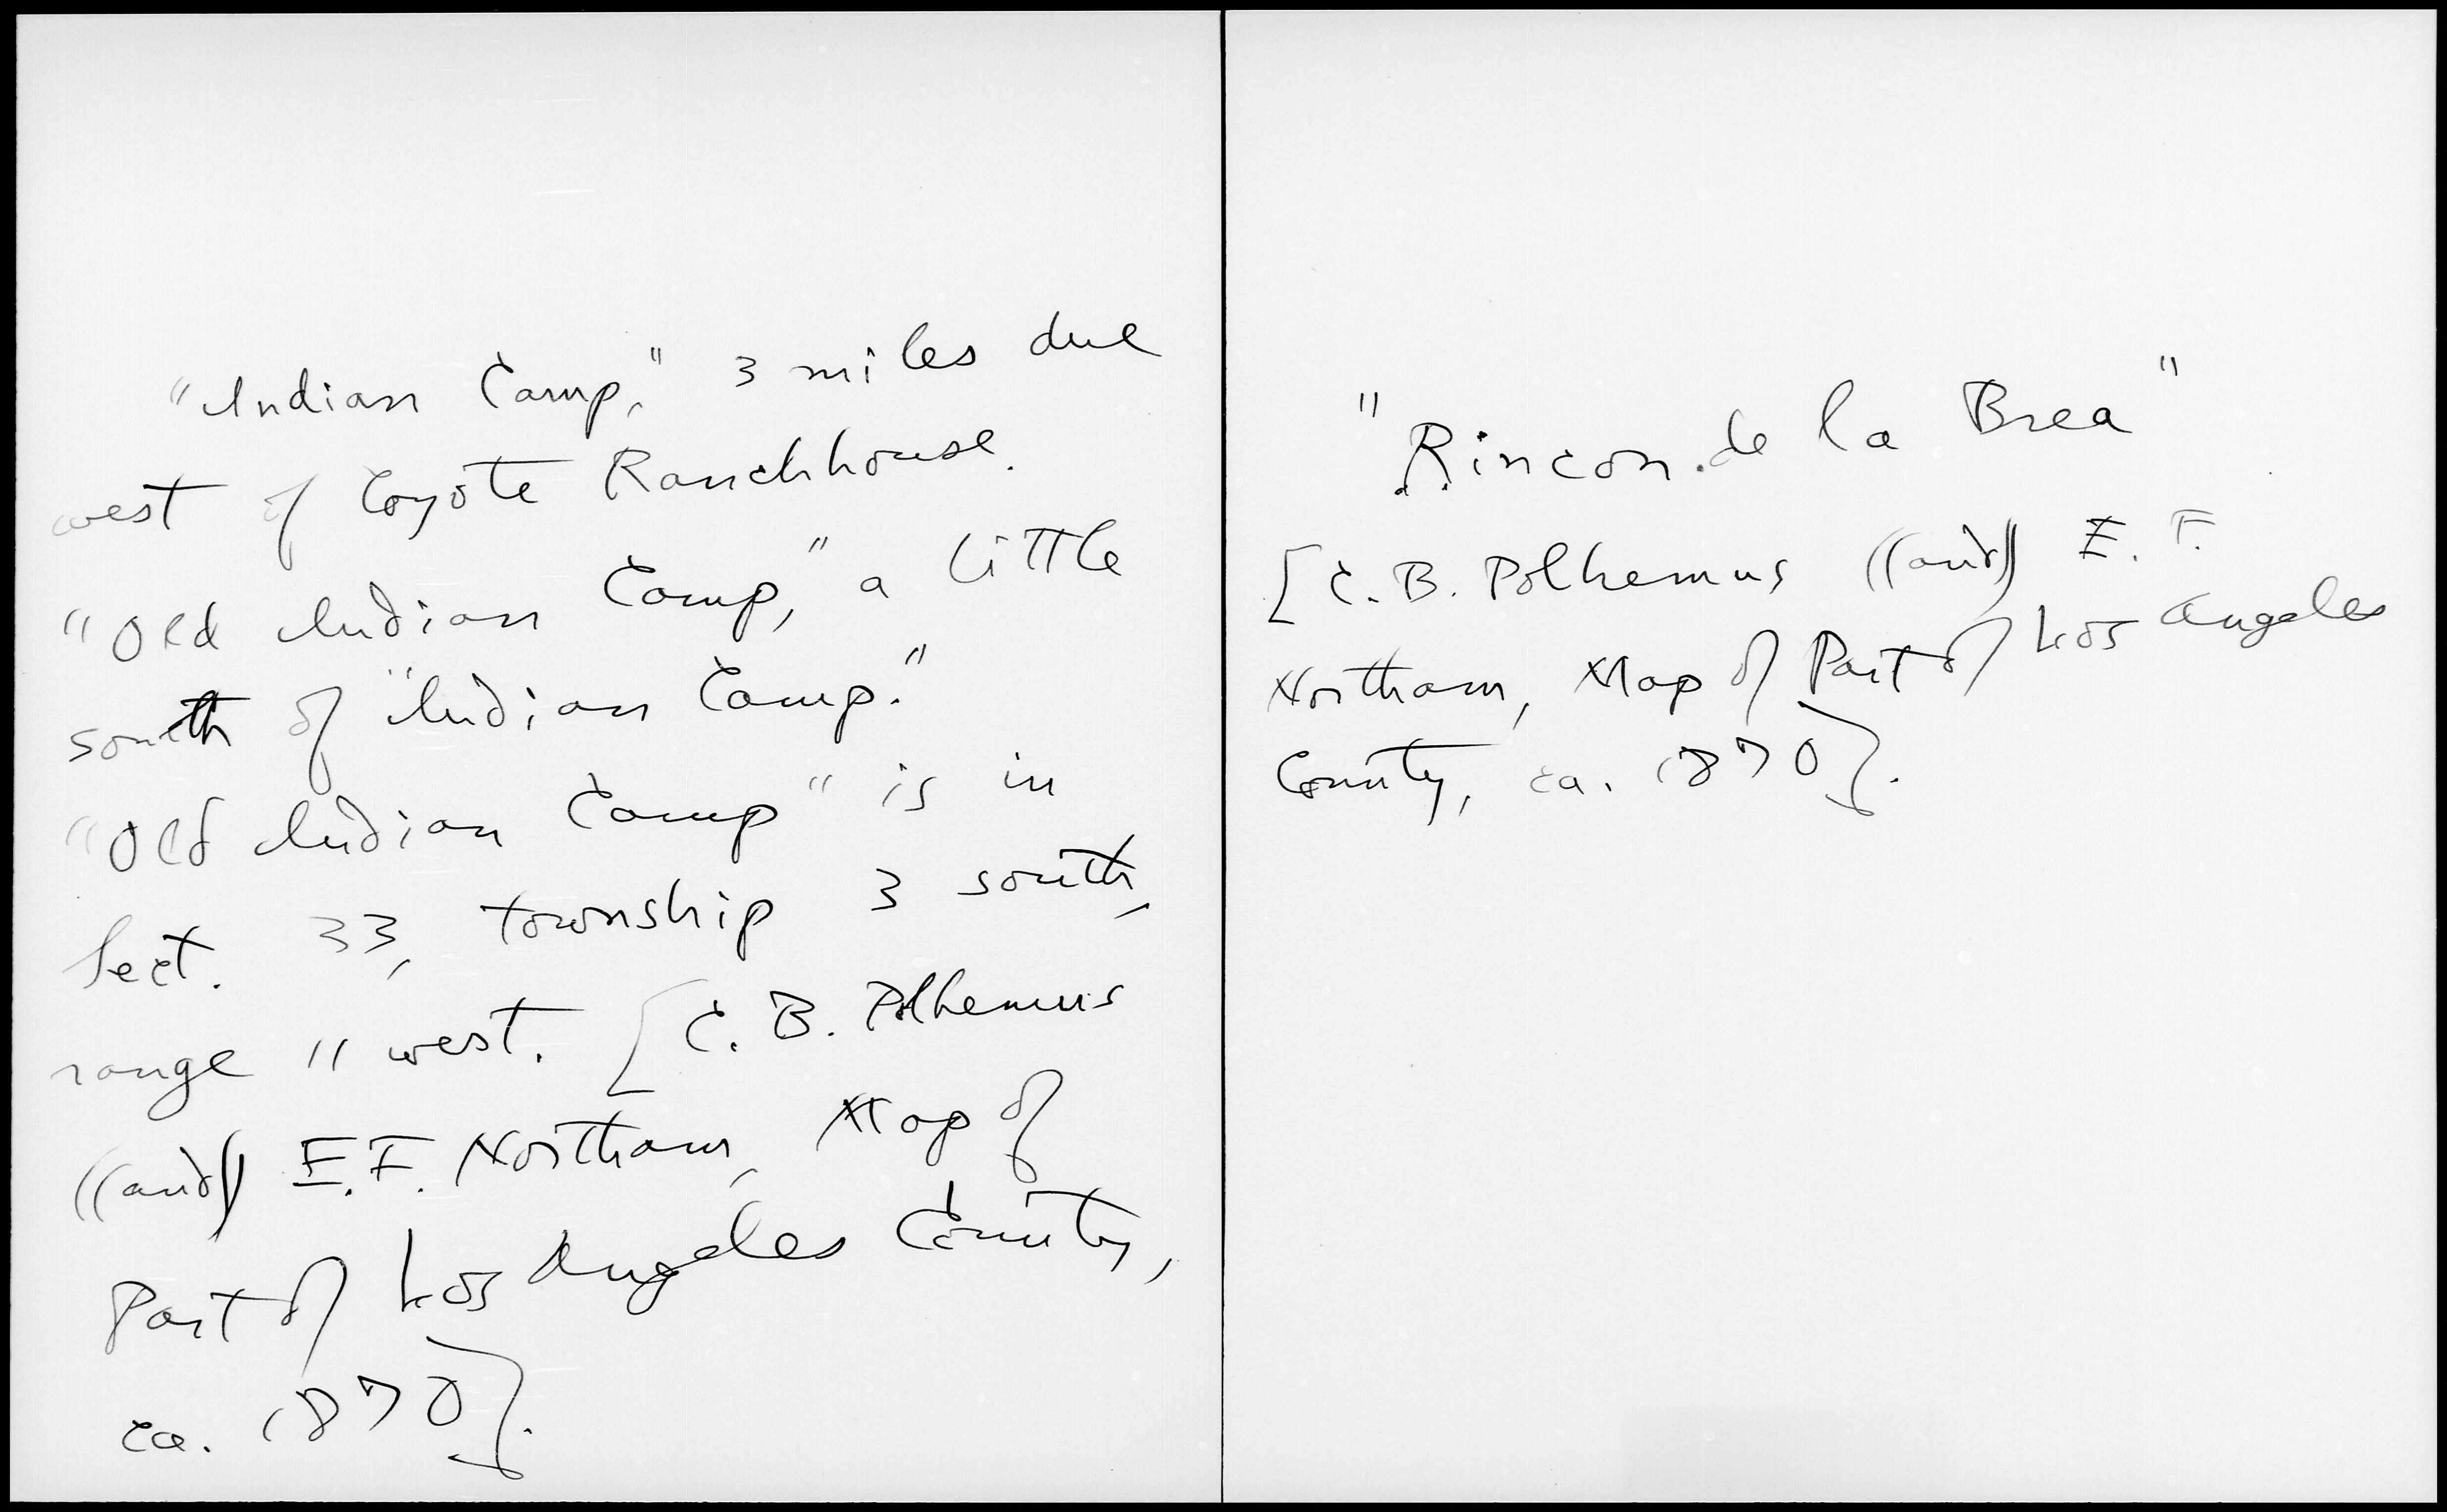 "Indian Camp," 3 miles due
west of Coyote Ranchhouse.
"Old Indian Camp," a little
south of "Indian Camp."
"Old Indian Camp" is in
Sect. 33, township 3 south,
range 11 west. [C. B. Polhemus
((and)) E. F. Northam, Map of
Part of Los Angeles County,
ca. 1870].
"Rincon de la Brea"
[C. B. Polhemus ((and)) E. F.
Northam, Map of Part of Los Angeles
County, ca. 1870].